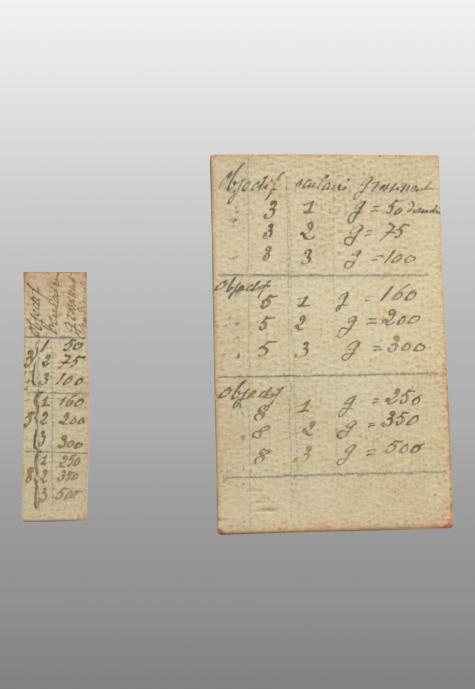 objectif oculaire
1 50
2 75
3 100
1 160
5 2 200
3 300
1 250
8 2 350
3 500
Objectif oculaire grossissent
3 1 g = 50
3 2 g = 75
3 3 g = 100
Objectif
5 1 g = 160
5 2 g = 200
5 3 g = 300
Objectif
8 1 g = 250
8 2 g = 350
8 3 g = 500